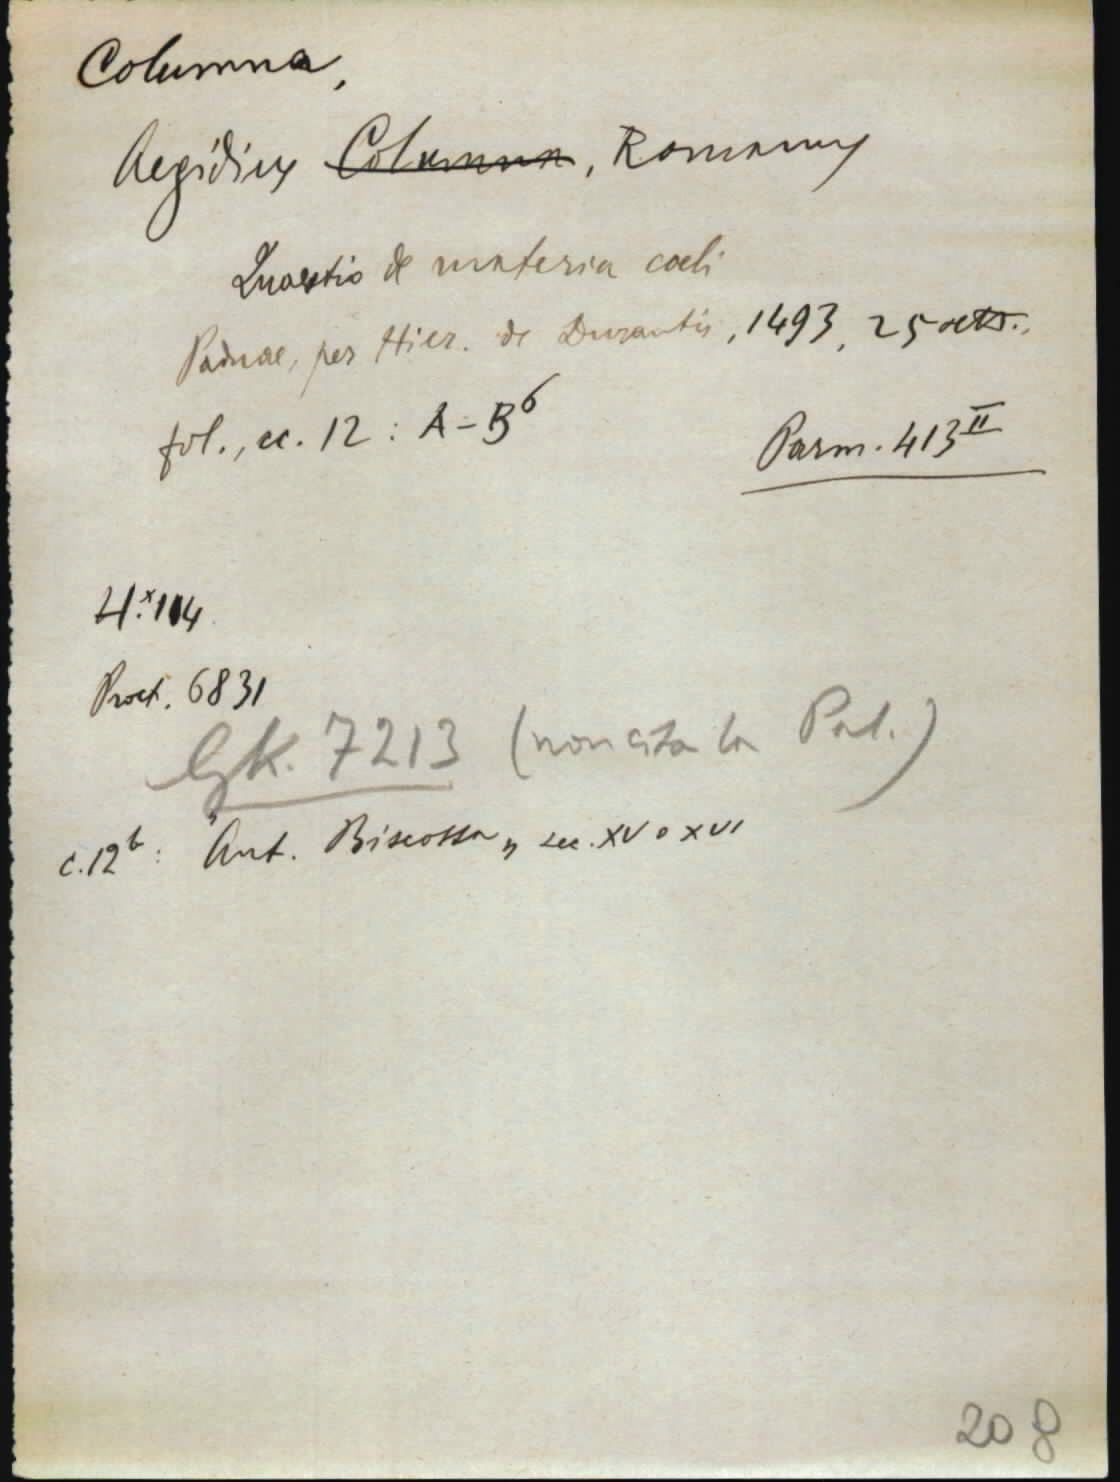 Columna,
Aegidius Columna, Romanus
Quaestio de materia coeli
Paduae, per Hier. de Durantis, 1493, 25 sett.,
fol., cc. 12 : A-B⁶
Parm. 413ᴵᴵ
H.ˣ 114
Proct. 6831
Gk. 7213 (non cita la Pal.)
c.12ᵇ: "Ant. Biscossa„ sec. XV o XVI
208